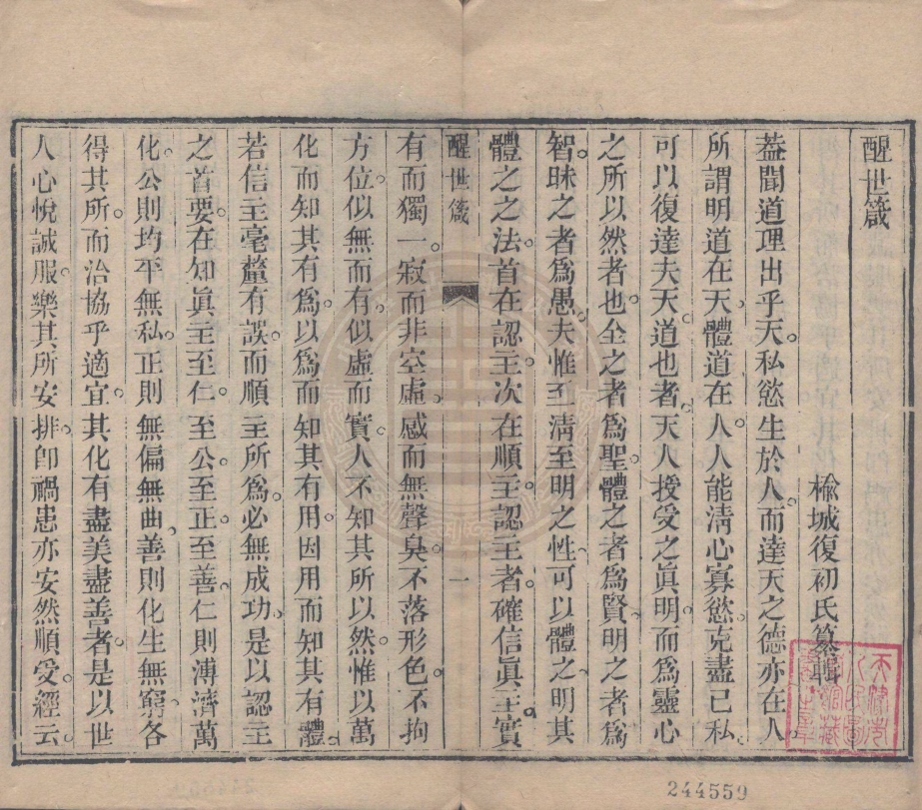 醒世箴
楡城復初氏纂輯
葢聞道理出乎天。私慾生於人。而達天之德亦在人
所謂明道在天、體道在人。人能淸心寡慾。克盡己私
可以復達夫天道也者。天人授受之眞明。而爲靈心
之所以然者也。全之者爲聖。體之者爲賢、明之者爲
智。昧之者爲愚。夫惟至淸至明之性、可以體之、明其
體之之法。首在認主。次在順主。認主者。確信眞主實
醒世箴
一
有而獨一。寂而非空虛。感而無聲臭。不落形色。不拘
方位。似無而有。似虛而實。人不知其所以然。惟以萬
化而知其有爲。以爲而知其有用。因用而知其有體。
若信主毫釐有誤。而順主所爲。必無成功、是以認主
之首要。在知眞主至仁。至公。至正。至善、仁則溥濟萬
化。公則均平無私。正則無偏無曲、善則化生無窮、各
得其所。而治協乎適宜。其化有盡美盡善者。是以世
人心悅誠服。樂其所安排。卽禍患亦安然順受。經云
244559